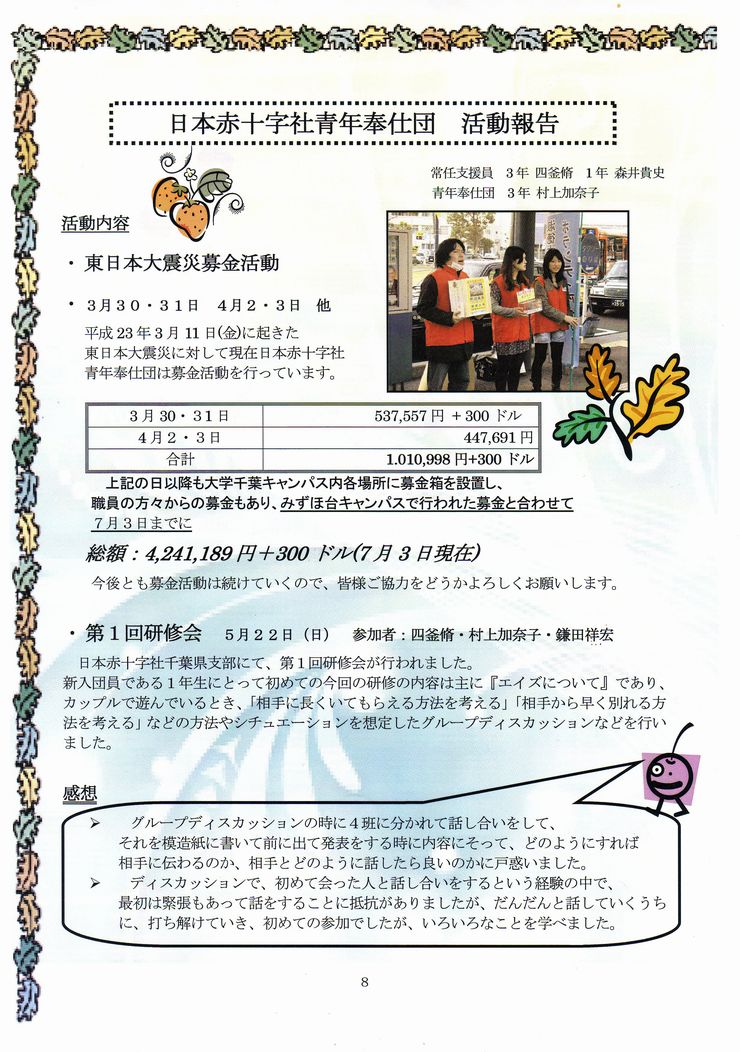 日本赤十字社青年奉仕団　活動報告
常任支援員　３年 四釜脩　１年 森井貴史
青年奉仕団　３年 村上加奈子
活動内容
・東日本大震災募金活動
・３月３０・３１日　４月２・３日　他
平成 23 年 3 月 11 日(金)に起きた
東日本大震災に対して現在日本赤十字社
青年奉仕団は募金活動を行っています。
３月 30・３１日　537,557 円 ＋300 ドル
４月２・３日　447,691 円
合計　1.010,998 円+300 ドル
上記の日以降も大学千葉キャンパス内各場所に募金箱を設置し、
職員の方々からの募金もあり、みずほ台キャンパスで行われた募金と合わせて
７月３日までに
総額：4,241,189 円＋300 ドル(７月 3 日現在)
今後とも募金活動は続けていくので、皆様ご協力をどうかよろしくお願いします。
・第１回研修会　５月２２日（日）　参加者：四釜脩・村上加奈子・鎌田祥宏
日本赤十字社千葉県支部にて、第１回研修会が行われました。
新入団員である１年生にとって初めての今回の研修の内容は主に『エイズについて』であり、
カップルで遊んでいるとき、「相手に長くいてもらえる方法を考える」「相手から早く別れる方
法を考える」などの方法やシチュエーションを想定したグループディスカッションなどを行い
ました。
感想
➢　グループディスカッションの時に４班に分かれて話し合いをして、
それを模造紙に書いて前に出て発表をする時に内容にそって、どのようにすれば
相手に伝わるのか、相手とどのように話したら良いのかに戸惑いました。
➢　ディスカッションで、初めて会った人と話し合いをするという経験の中で、
最初は緊張もあって話をすることに抵抗がありましたが、だんだんと話していくうち
に、打ち解けていき、初めての参加でしたが、いろいろなことを学べました。
8